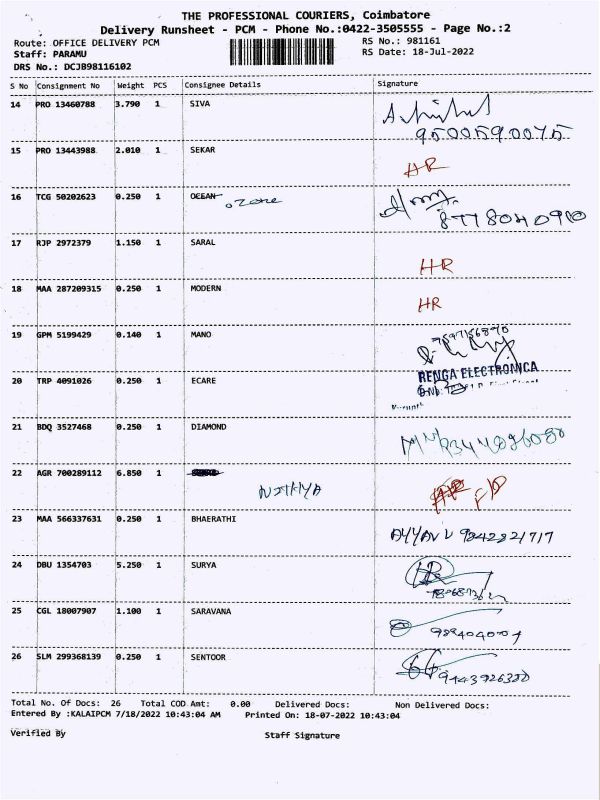 THE PROFESSIONAL COURIERS, Coimbatore
Delivery Runsheet - PCM - Phone No.:0422-3505555 - Page No.:2
Route: OFFICE DELIVERY PCM RS No.: 981161
Staff: PARAMU RS Date: 18-Jul-2022
DRS No.: DCJB98116102
S No Consignment No Weight PCS Consignee Details Signature
14 PRO 13460788 3.790 1 SIVA
9500590075
15 PRO 13443988 2.010 1 SEKAR HR
16 TCG 50202623 0.250 1 OCEAN ozone
8778040910
17 RJP 2972379 1.150 1 SARAL HR
18 MAA 287209315 0.250 1 MODERN HR
19 GPM 5199429 0.140 1 MANO
RENGA ELECTRONICA
20 TRP 4091026 0.250 1 ECARE
21 BDQ 3527468 0.250 1 DIAMOND
22 AGR 700289112 6.850 1 NITHYA
23 MAA 566337631 0.250 1 BHAERATHI 9842821717
24 DBU 1354703 5.250 1 SURYA
25 CGL 18007907 1.100 1 SARAVANA
26 SLM 299368139 0.250 1 SENTOOR 9443926330
Total No. Of Docs: 26 Total COD Amt: 0.00 Delivered Docs: Non Delivered Docs:
Entered By :KALAIPCM 7/18/2022 10:43:04 AM Printed On: 18-07-2022 10:43:04
Verified By Staff Signature